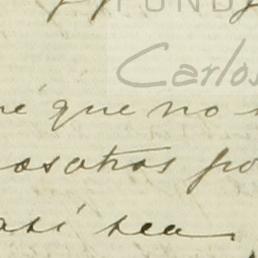 FUND
Carlos
é que no
osotros po
así sea